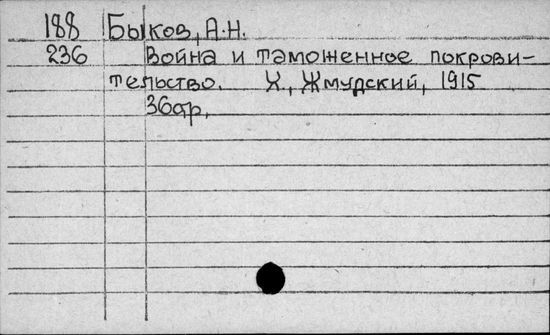 188 Быков, А.Н.
236 Война и таможенное покрови-
тельство. Х., Жмудский, 1915
36стр.